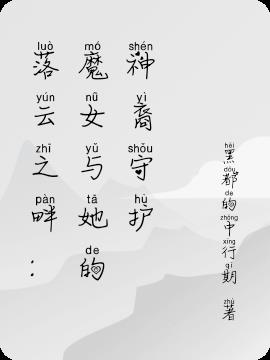 luò 落 yún 云 zhī 之 pàn 畔 ：
mó 魔 nǚ 女 yǔ 与 tā 她 de 的
shén 神 yì 裔 shǒu 守 hù 护
hēi 黑 dōu 都 de 的 zhōng 中 xíng 行 qī 期 zhù 著